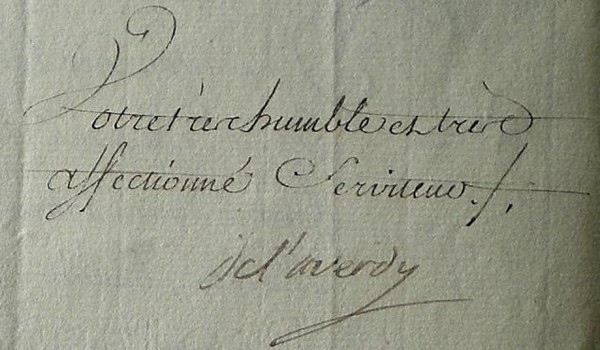 Votre très humble et très
affectionné Serviteur./.
del'averdy